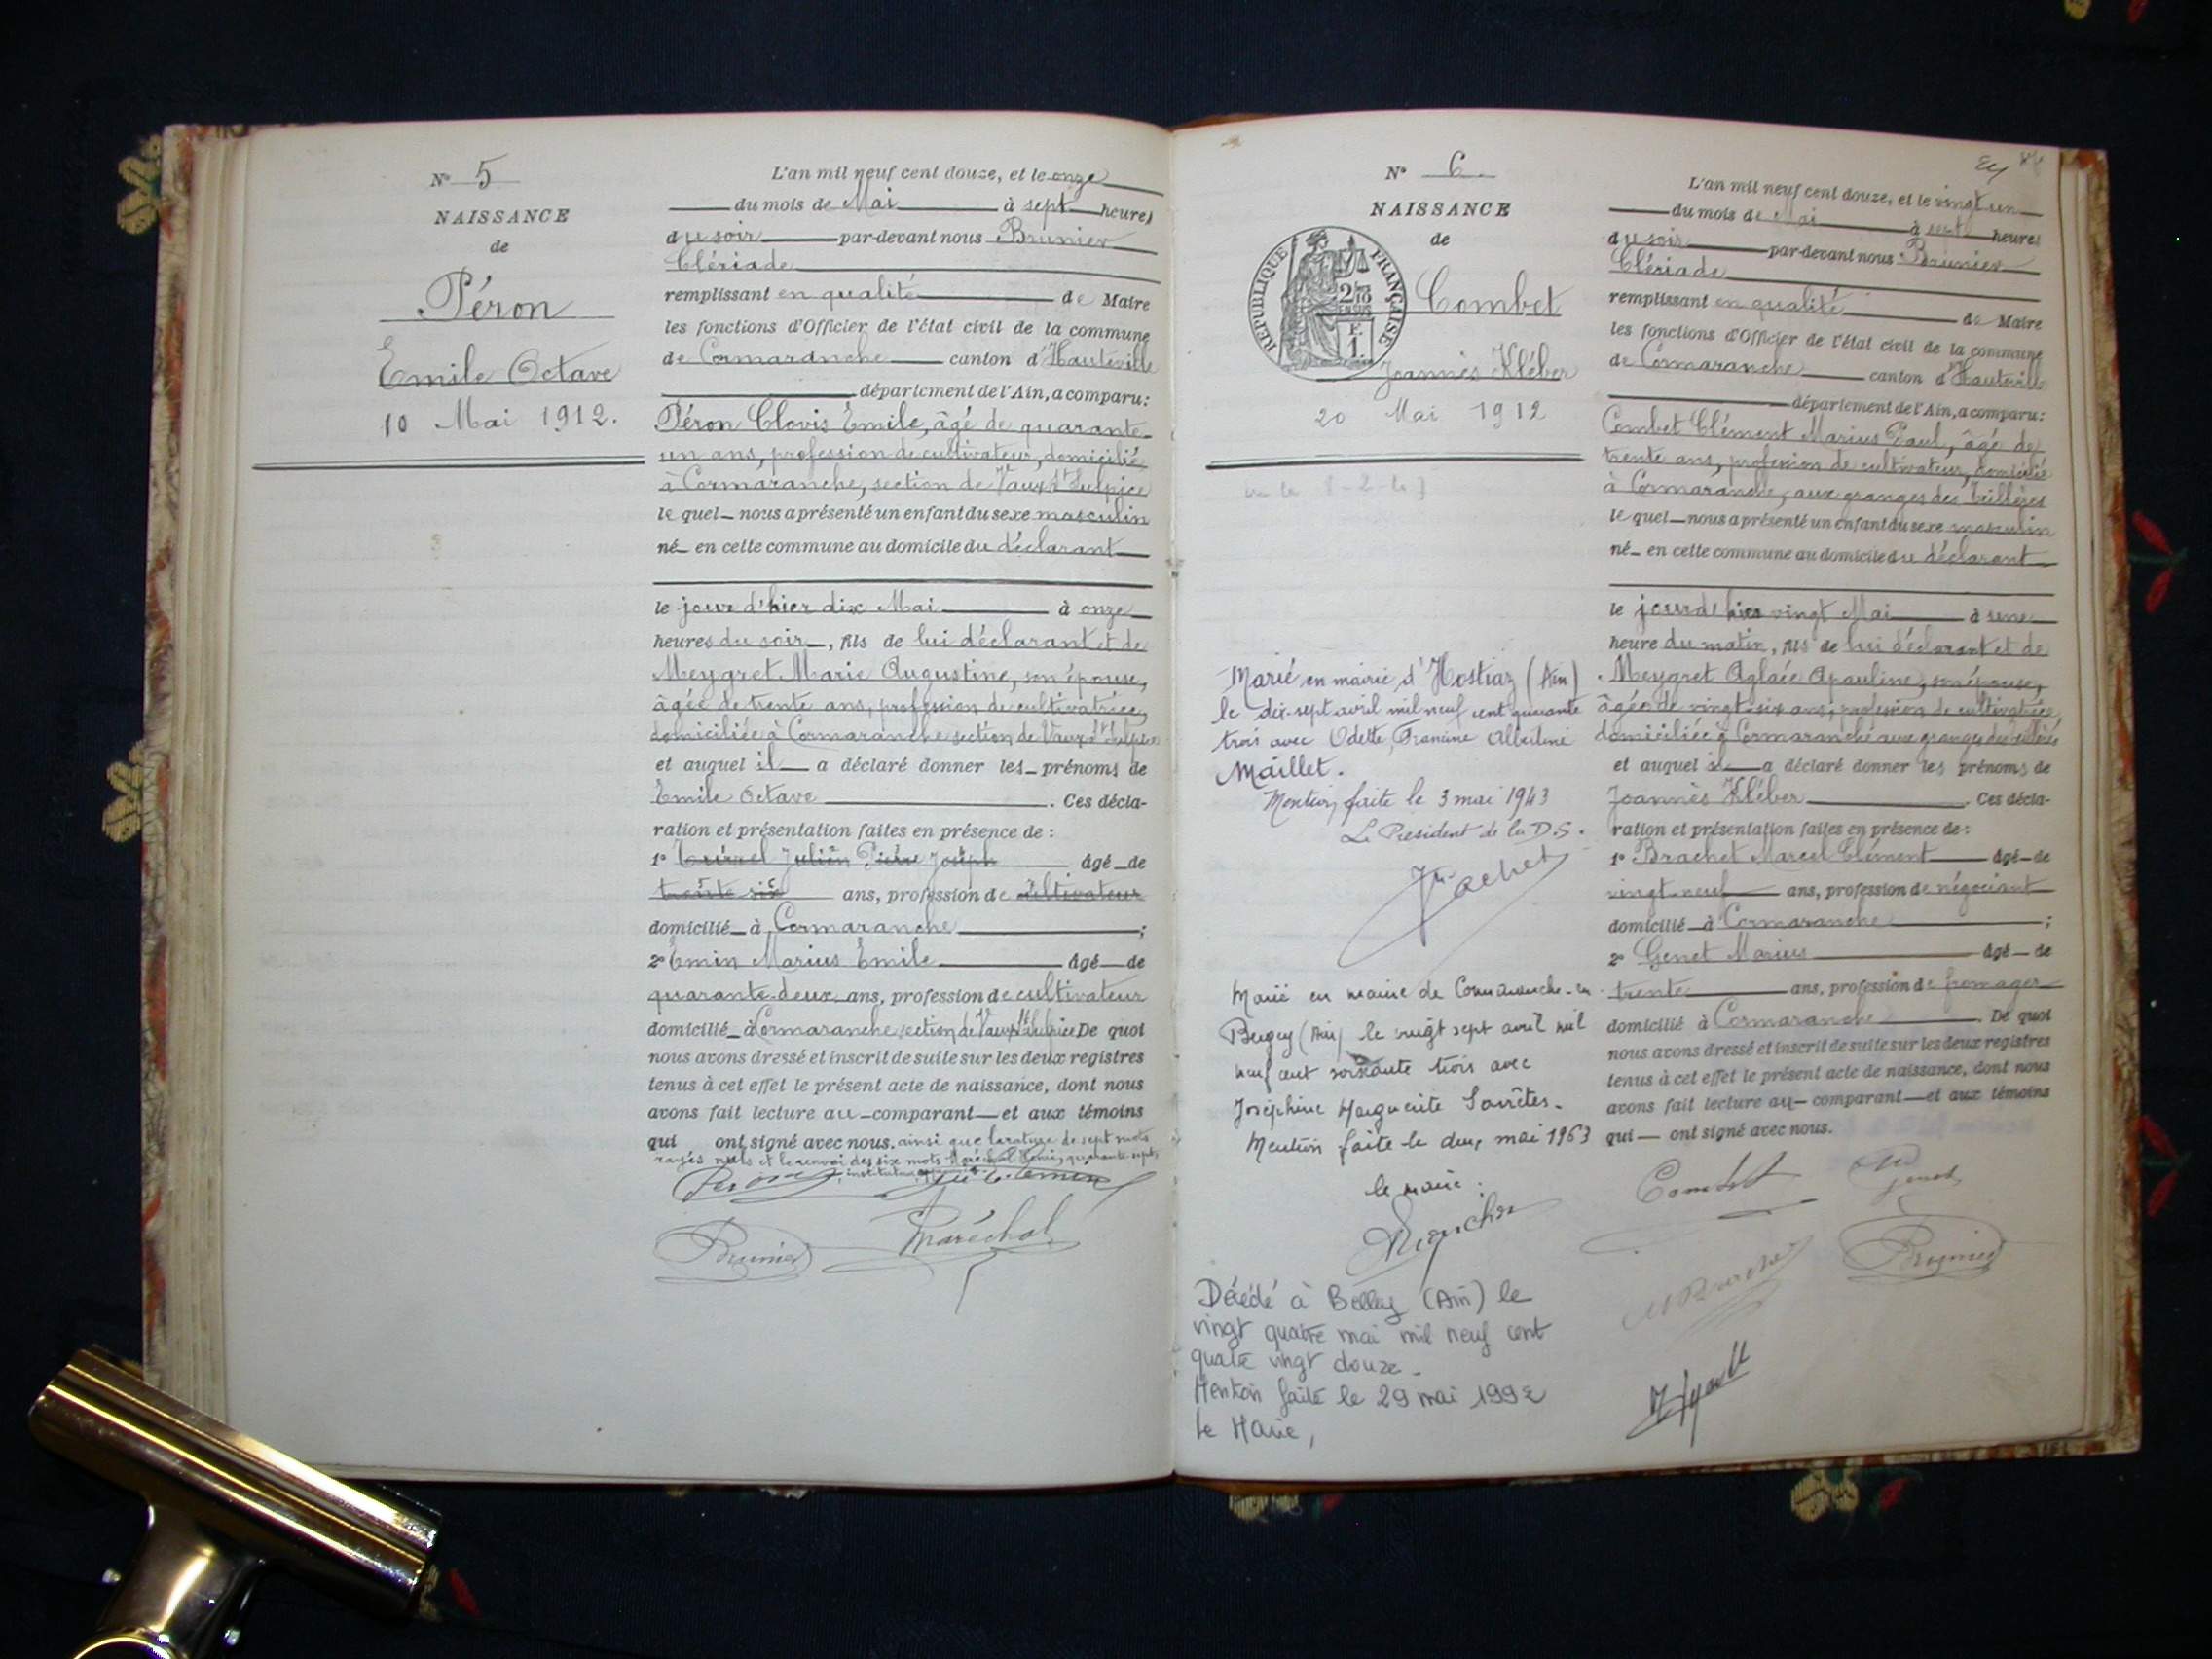 N° 5
NAISSANCE
de
Péron
Emile Octave
10 Mai 1912.
L'an mil neuf cent douze, et le onze
du mois de Mai à sept heures
du soir par-devant nous Brunier
Clériade
remplissant en qualité de Maire
les fonctions d'Officier de l'état civil de la commune
de Cormaranche canton d'Hauteville
département de l'Ain, a comparu:
Péron Clovis Emile, âgé de quarante-
un ans, profession de cultivateur, domicilié
à Cormaranche, section de Vaux St Sulpice
le quel nous a présenté un enfant du sexe masculin
né en cette commune au domicile du déclarant
le jour d'hier dix Mai à onze
heures du soir, fils de lui déclarant et de
Meygret Marie Augustine, son épouse,
âgée de trente ans, profession de cultivatrice,
domiciliée à Cormaranche section de Vaux St Sulpice
et auquel il a déclaré donner les prénoms de
Emile Octave. Ces décla-
ration et présentation faites en présence de :
1° Julien Pierre Joseph âgé de
trente six ans, profession de cultivateur
domicilié à Cormaranche;
2° Emin Marius Emile âgé de
quarante-deux ans, profession de cultivateur
domicilié à Cormaranche section de Vaux St Sulpice De quoi
nous avons dressé et inscrit de suite sur les deux registres
tenus à cet effet le présent acte de naissance, dont nous
avons fait lecture au comparant et aux témoins
qui ont signé avec nous. ainsi que la rature de sept mots
rayés nuls et le renvoi des six mots Maréchal quarante sept
instituteur
Péron Emin
Brunier Maréchal
N° 6
NAISSANCE
de
RÉPUBLIQUE FRANÇAISE
Combet
Joannès Kléber
20 Mai 1912
Marié en mairie d'Hostiaz (Ain)
le dix-sept avril mil neuf cent quarante
trois avec Odette, Francine Albertine
Maillet.
Mention faite le 3 mai 1943
Le Président de la D.S.
Marié en mairie de Cormaranche-en
Bugey (Ain) le vingt sept avril mil
neuf cent soixante trois avec
Joséphine Marguerite
Mention faite le deux mai 1963
le maire:
Décédé à Belley (Ain) le
vingt quatre mai mil neuf cent
quatre vingt douze.
Mention faite le 29 mai 1992
Le Maire,
L'an mil neuf cent douze, et le vingt un
du mois de Mai à sept heures
du soir par-devant nous Brunier
Clériade
remplissant en qualité de Maire
les fonctions d'Officier de l'état civil de la commune
de Cormaranche canton d'Hauteville
département de l'Ain, a comparu:
Combet Clément Marius Paul, âgé de
trente ans, profession de cultivateur, domicilié
à Cormaranche, aux granges des
le quel nous a présenté un enfant du sexe masculin
né en cette commune au domicile du déclarant
le jour d'hier vingt Mai à une
heure du matin, fils de lui déclarant et de
Meygret Aglaée Apauline, son épouse,
âgée de vingt-six ans, profession de cultivatrice,
domiciliée à Cormaranche aux granges des
et auquel il a déclaré donner les prénoms de
Joannès Kléber. Ces décla-
ration et présentation faites en présence de :
1° Brachet Marcel Clément âgé de
vingt-neuf ans, profession de négociant
domicilié à Cormaranche;
2° Genet Marius âgé de
trente ans, profession de fromager
domicilié à Cormaranche. De quoi
nous avons dressé et inscrit de suite sur les deux registres
tenus à cet effet le présent acte de naissance, dont nous
avons fait lecture au comparant et aux témoins
qui ont signé avec nous.
Combet Genet
Brunier